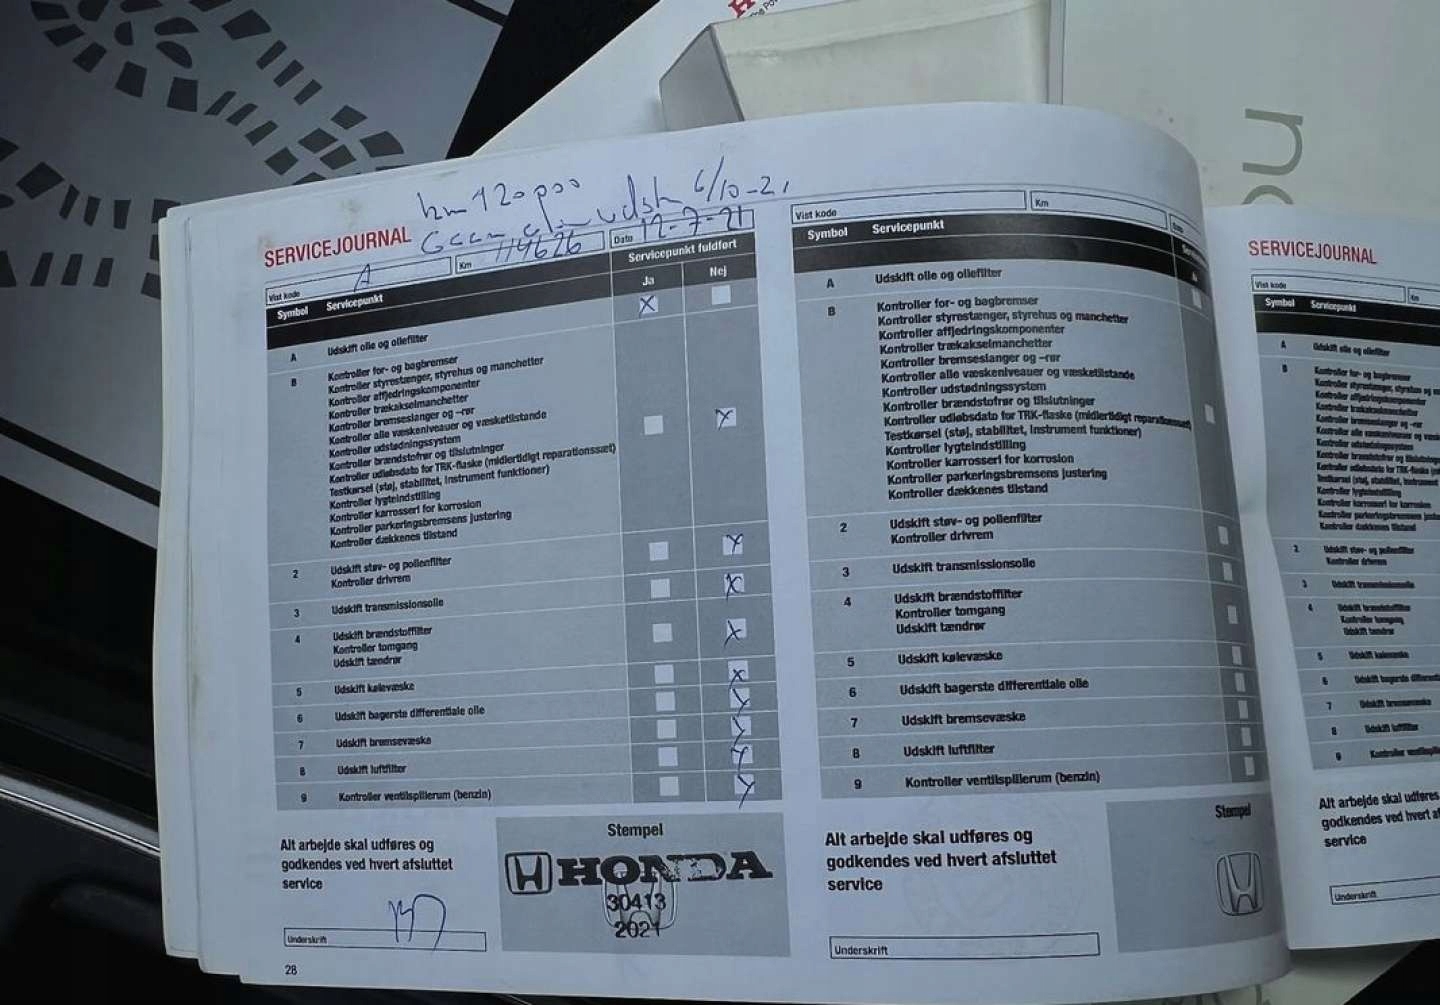 km 120000
Gear olie udsk 6/10-21
SERVICEJOURNAL
Vist kode A Km 114626 Dato 12-7-21
Symbol Servicepunkt Servicepunkt fuldført
Ja Nej
A Udskift olie og oliefilter X
B Kontroller for- og bagbremser
Kontroller styrestænger, styrehus og manchetter
Kontroller affjedringskomponenter
Kontroller trækakselmanchetter
Kontroller bremseslanger og –rør
Kontroller alle væskeniveauer og væsketilstande
Kontroller udstødningssystem
Kontroller brændstofrør og tilslutninger
Kontroller udløbsdato for TRK-flaske (midlertidigt reparationssæt)
Testkørsel (støj, stabilitet, instrument funktioner)
Kontroller lygteindstilling
Kontroller karrosseri for korrosion
Kontroller parkeringsbremsens justering
Kontroller dækkenes tilstand
X
2 Udskift støv- og pollenfilter
Kontroller drivrem
X
3 Udskift transmissionsolie X
4 Udskift brændstoffilter
Kontroller tomgang
Udskift tændrør
X
5 Udskift kølevæske X
6 Udskift bagerste differentiale olie X
7 Udskift bremsevæske X
8 Udskift luftfilter X
9 Kontroller ventilspillerum (benzin) X
Alt arbejde skal udføres og
godkendes ved hvert afsluttet
service
Underskrift
Stempel
HONDA
30413
2021
28
Vist kode Km
Symbol Servicepunkt
A Udskift olie og oliefilter
B Kontroller for- og bagbremser
Kontroller styrestænger, styrehus og manchetter
Kontroller affjedringskomponenter
Kontroller trækakselmanchetter
Kontroller bremseslanger og –rør
Kontroller alle væskeniveauer og væsketilstande
Kontroller udstødningssystem
Kontroller brændstofrør og tilslutninger
Kontroller udløbsdato for TRK-flaske (midlertidigt reparationssæt)
Testkørsel (støj, stabilitet, instrument funktioner)
Kontroller lygteindstilling
Kontroller karrosseri for korrosion
Kontroller parkeringsbremsens justering
Kontroller dækkenes tilstand
2 Udskift støv- og pollenfilter
Kontroller drivrem
3 Udskift transmissionsolie
4 Udskift brændstoffilter
Kontroller tomgang
Udskift tændrør
5 Udskift kølevæske
6 Udskift bagerste differentiale olie
7 Udskift bremsevæske
8 Udskift luftfilter
9 Kontroller ventilspillerum (benzin)
Alt arbejde skal udføres og
godkendes ved hvert afsluttet
service
Underskrift
Stempel
SERVICEJOURNAL
Vist kode Km
Symbol Servicepunkt
A Udskift olie og oliefilter
B Kontroller for- og bagbremser
Kontroller styrestænger, styrehus og
Kontroller affjedringskomponenter
Kontroller trækakselmanchetter
Kontroller bremseslanger og –rør
Kontroller alle væskeniveauer og
Kontroller udstødningssystem
Kontroller brændstofrør og
Kontroller udløbsdato for TRK-flaske
Testkørsel (støj, stabilitet, instrument
Kontroller lygteindstilling
Kontroller karrosseri for korrosion
Kontroller parkeringsbremsens
Kontroller dækkenes tilstand
2 Udskift støv- og pollenfilter
Kontroller drivrem
3 Udskift transmissionsolie
4 Udskift brændstoffilter
Kontroller tomgang
Udskift tændrør
5 Udskift kølevæske
6 Udskift bagerste
7 Udskift bremsevæske
8 Udskift luftfilter
9 Kontroller
Alt arbejde skal udføres
godkendes ved hvert
service
Underskrift